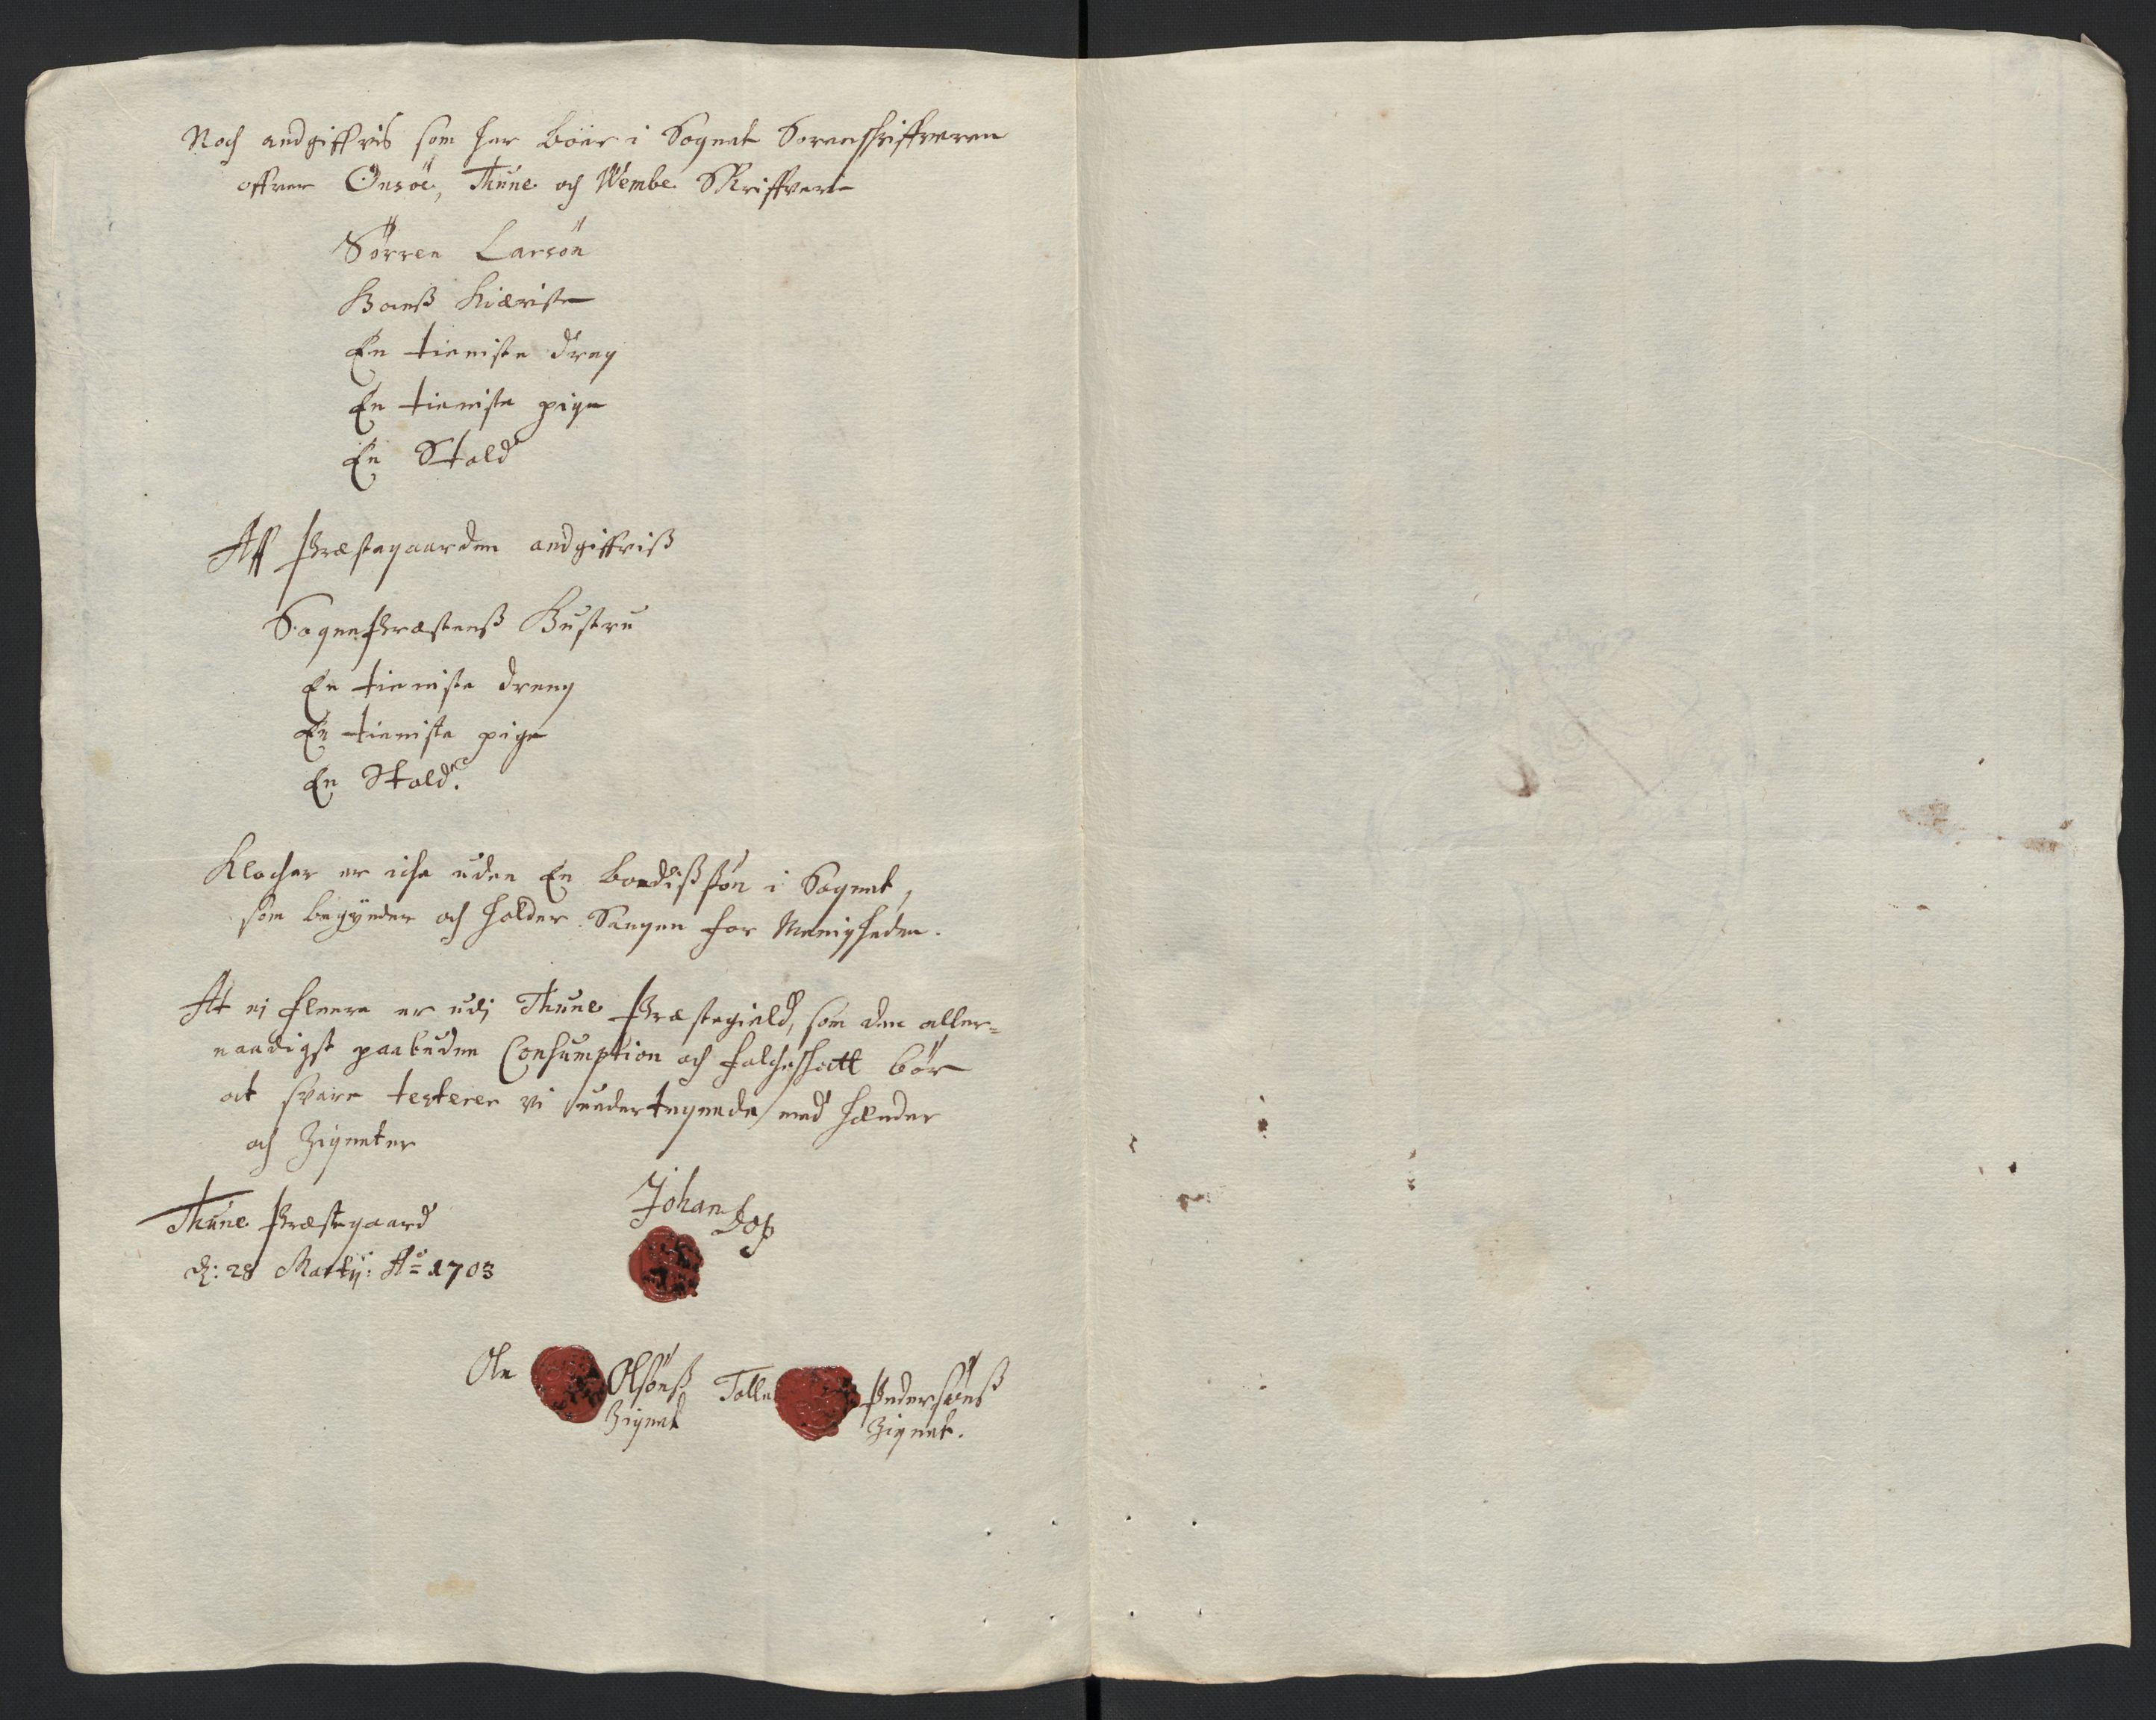 Noch andgiffvis som her böer i Sognet Sorenschriffveren
offver Onsöe, Thune och Wembe Skriffverie
Sörren Larsön
Hanß Kiæriste
En tieniste dreng
En tieniste pige
En Stald
Aff Præstegaarden andgiffviß
SognePræstenß Hustru
En tieniste dreng
En tieniste pige
En Stald.
Klocher er iche uden En bondißsön i Sognet,
som begynder och holder Sangen for Menigheden.
At ej fleere er udj Thune Præstegield, som den aller=
naadigst paabudne Consumption och folcheskatt bör
at svare testerer vi undertegnede med hænder
och Zigneter
Thune Præstegaard
d: 28 Martij: Ao 1703
Johan
Ole Olsönß Tolle Pedersönß
Zignet Zignet.